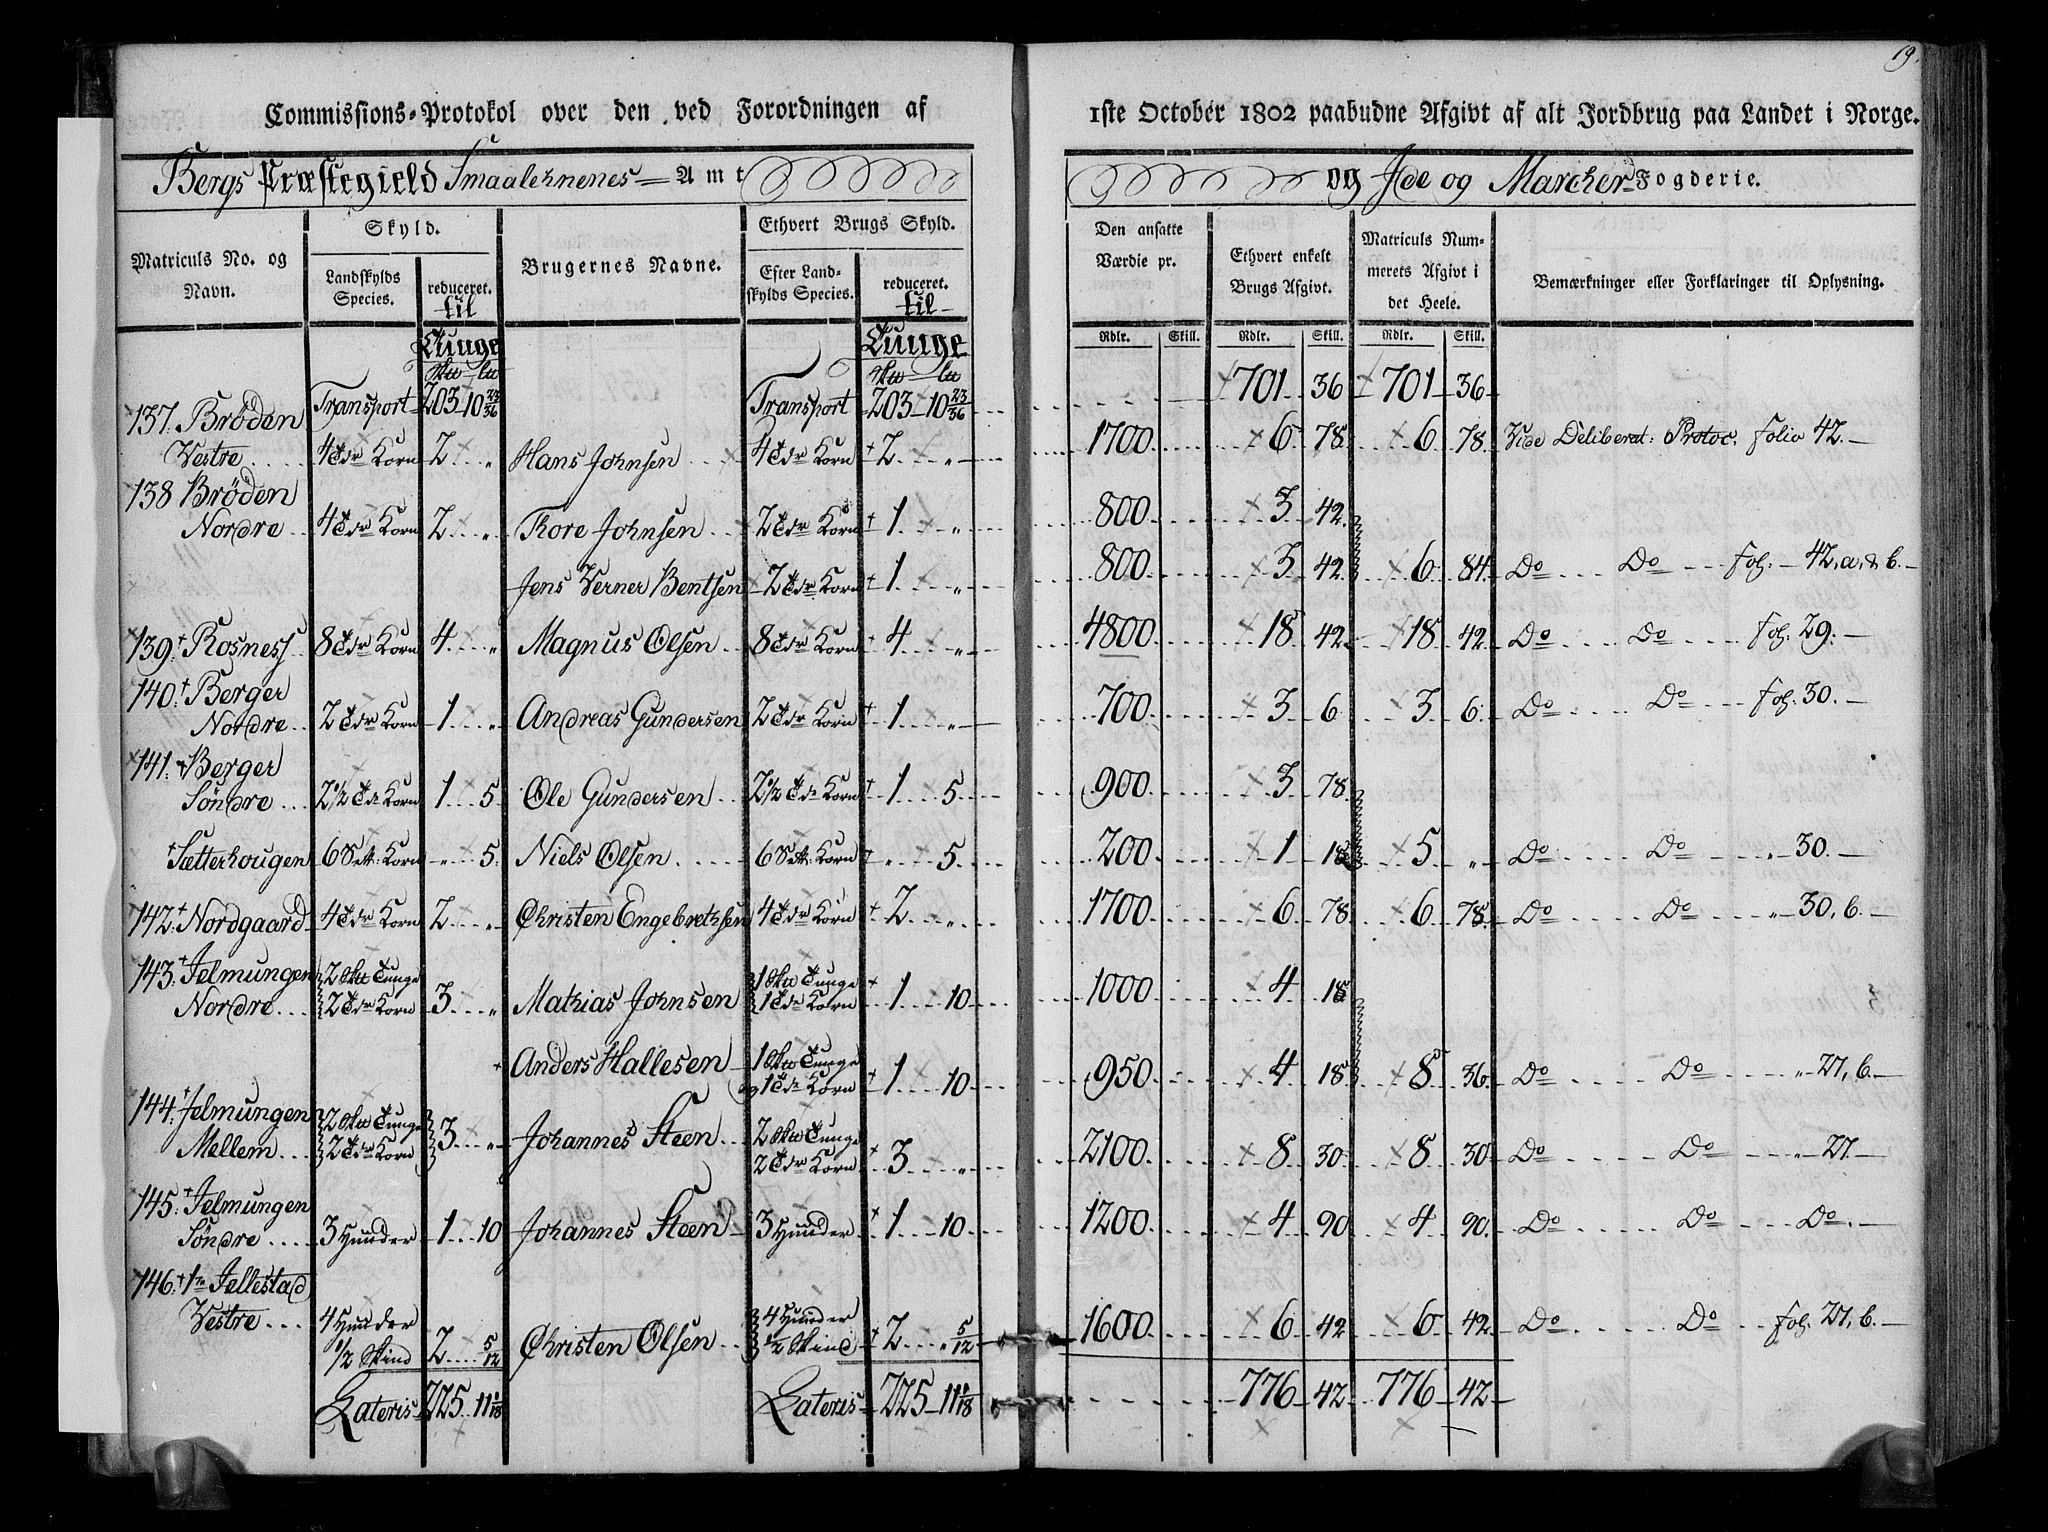 19.
Commissions-Protokol over den ved Forordningen af 1ste October 1802 paabudne Afgivt af alt Jordbrug paa Landet i Norge.
Bergs Præstegield Smaalehnenes Amt og Ide og Marcher Fogderie.
Matriculs No. og Navn.
Skyld.
Landskylds Species.
reduceret. til Tunge
Brugernes Navne.
Ethvert Brugs Skyld.
Efter Landskylds Species.
reduceret. til Tunge
Den ansatte Værdie pr.
Ethvert enkelt Brugs Afgivt.
Matriculs Nummerets Afgivt i det Heele.
Bemærkninger eller Forklaringer til Oplysning.
Rdlr. Skill. Rdlr. Skill. Rdlr. Skill.
Transport 203 10 23/36 Transport 203 10 23/36 701 36 701 36
137. Brøden Vestre 4 Tdr Korn 2 " Hans Johnsen 4 Tdr Korn 2 " 1700 6 78 6 78 Vide Deliberat: Protoc. folio 42.
138 Brøden Nordre 4 Tdr Korn 2 " Thore Johnsen 2 Tdr Korn 1 " 800 3 42
Jens Verner Bentsen 2 Tdr Korn 1 " 800 3 42 6 84 Do Do fol. 42, a, & b.
139. Rosness 8 Tdr Korn 4 " Magnus Olsen 8 Tdr Korn 4 " 4800 18 42 18 42 Do Do fol. 29.
140. Berger Nordre 2 Tdr Korn 1 " Andreas Gundersen 2 Tdr Korn 1 " 700 3 6 3 6 Do Do fol. 30.
141. Berger Søndre 2 1/2 Td Korn 1 5 Ole Gundersen 2 1/2 Td Korn 1 5 900 3 78
Sætterhougen 6 Sett: Korn " 5 Niels Olsen 6 Sett: Korn " 5 200 1 18 5 " Do Do " 30.
142. Nordgaard 4 Tdr Korn 2 " Christen Engebretsen 4 Tdr Korn 2 " 1700 6 78 6 78 Do Do " 30, b.
143. Jelmungen Nordre 2 Skn Tunge 2 Tdr Korn 3 " Mathias Johnsen 1 Skn Tunge 1 Tdr Korn 1 10 1000 4 18
Anders Hallesen 1 Skn Tunge og 1 Td Korn 1 10 950 4 18 8 36 Do Do " 27, b.
144. Jelmungen Mellem 2 Skn Tunge 2 Tdr Korn 3 " Johannes Steen 2 Skn Tunge 2 Tdr Korn 3 " 2100 8 30 8 30 Do Do " 27.
145. Jelmungen Søndre 3 Hunder 1 10 Johannes Steen 3 Hunder 1 10 1200 4 90 4 90 Do Do Do.
146. Jellestad Vestre 4 Hunder 1/2 Skind 2 5/12 Christen Olsen 4 Hunder 1/2 Skind 2 " 5/12 1600 6 42 6 42 Do Do fol. 27, b.
Lateris 225 11 1/18 Lateris 225 11 1/18 776 42 776 42